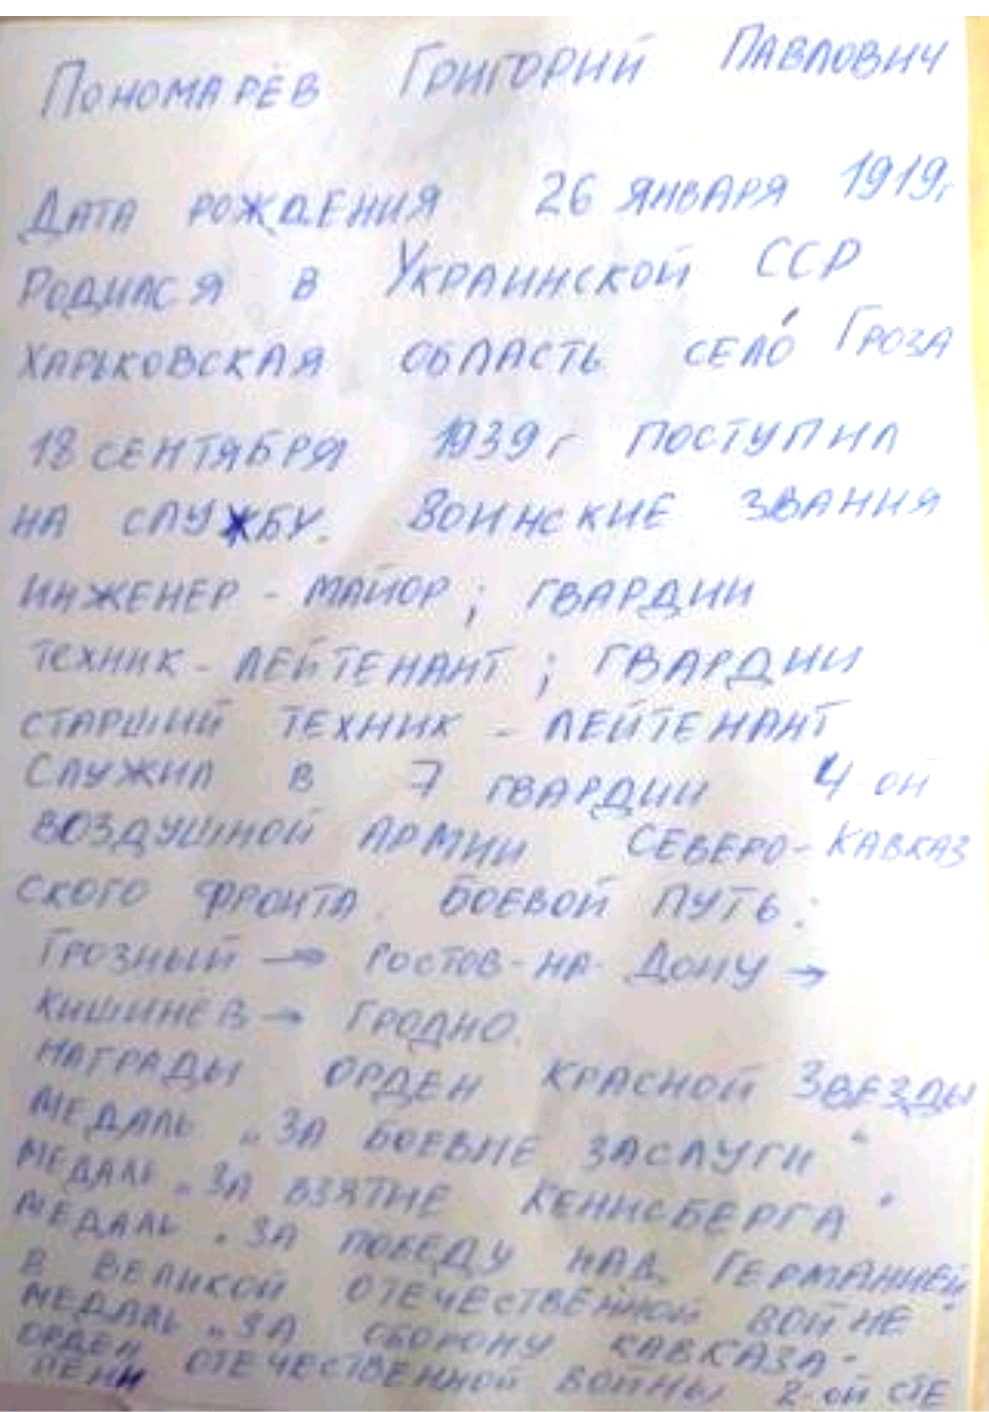 Пономарёв Григорий Павлович
Дата рождения 26 января 1919г
Родился в Украинской ССР
Харьковская область село Гроза
18 сентября 1939г поступил
на службу. Воинские звания
инженер - майор; гвардии
техник - лейтенант; гвардии
старший техник - лейтенант
Служил в 7 гвардии 4 ой
воздушной армии Северо-Кавказ
ского фронта. Боевой путь:
Грозный → Ростов-на-Дону →
Кишинев → Гродно.
Награды орден Красной Звезды
медаль „За боевые заслуги“
медаль „За взятие Кенисберга“
медаль „За победу над Германией
в Великой Отечественной войне“
медаль „За оборону Кавказа“
орден Отечественной войны 2-ой сте
пени